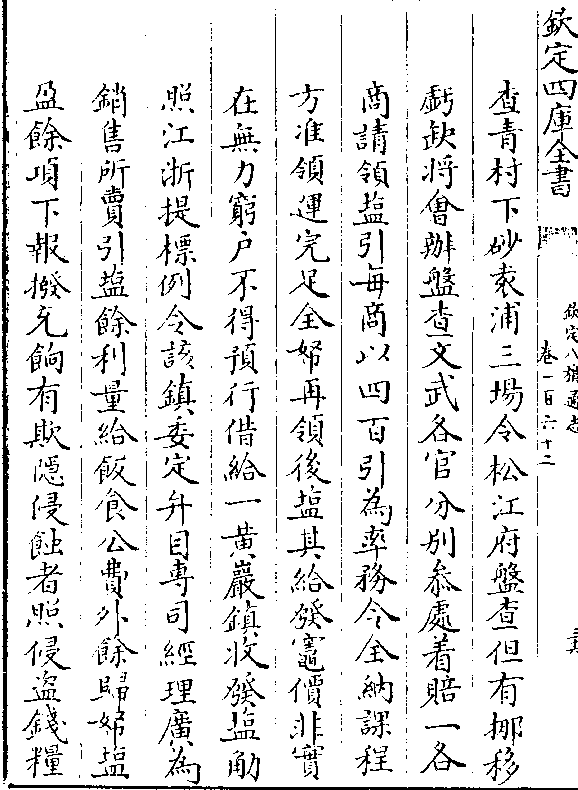 欽定四庫全書
欽定八旗通志
卷一百六十二
查青村下砂袁浦三場令松江府盤查但有挪移
虧缺將㑹辦盤查文武各官分别叅處着賠一各
商請領塩引每商以四百引為率務令全納課程
方准領運完足全帑再領後塩其給發竈價非實
在無力窮户不得預行借給一黄巖鎮收發塩觔
照江浙提標例令該鎮委定弁目專司經理廣為
銷售所賣引塩餘利量給飯食公費外餘歸帑塩
盈餘項下報撥充餉有欺隱侵蝕者照侵盗錢糧